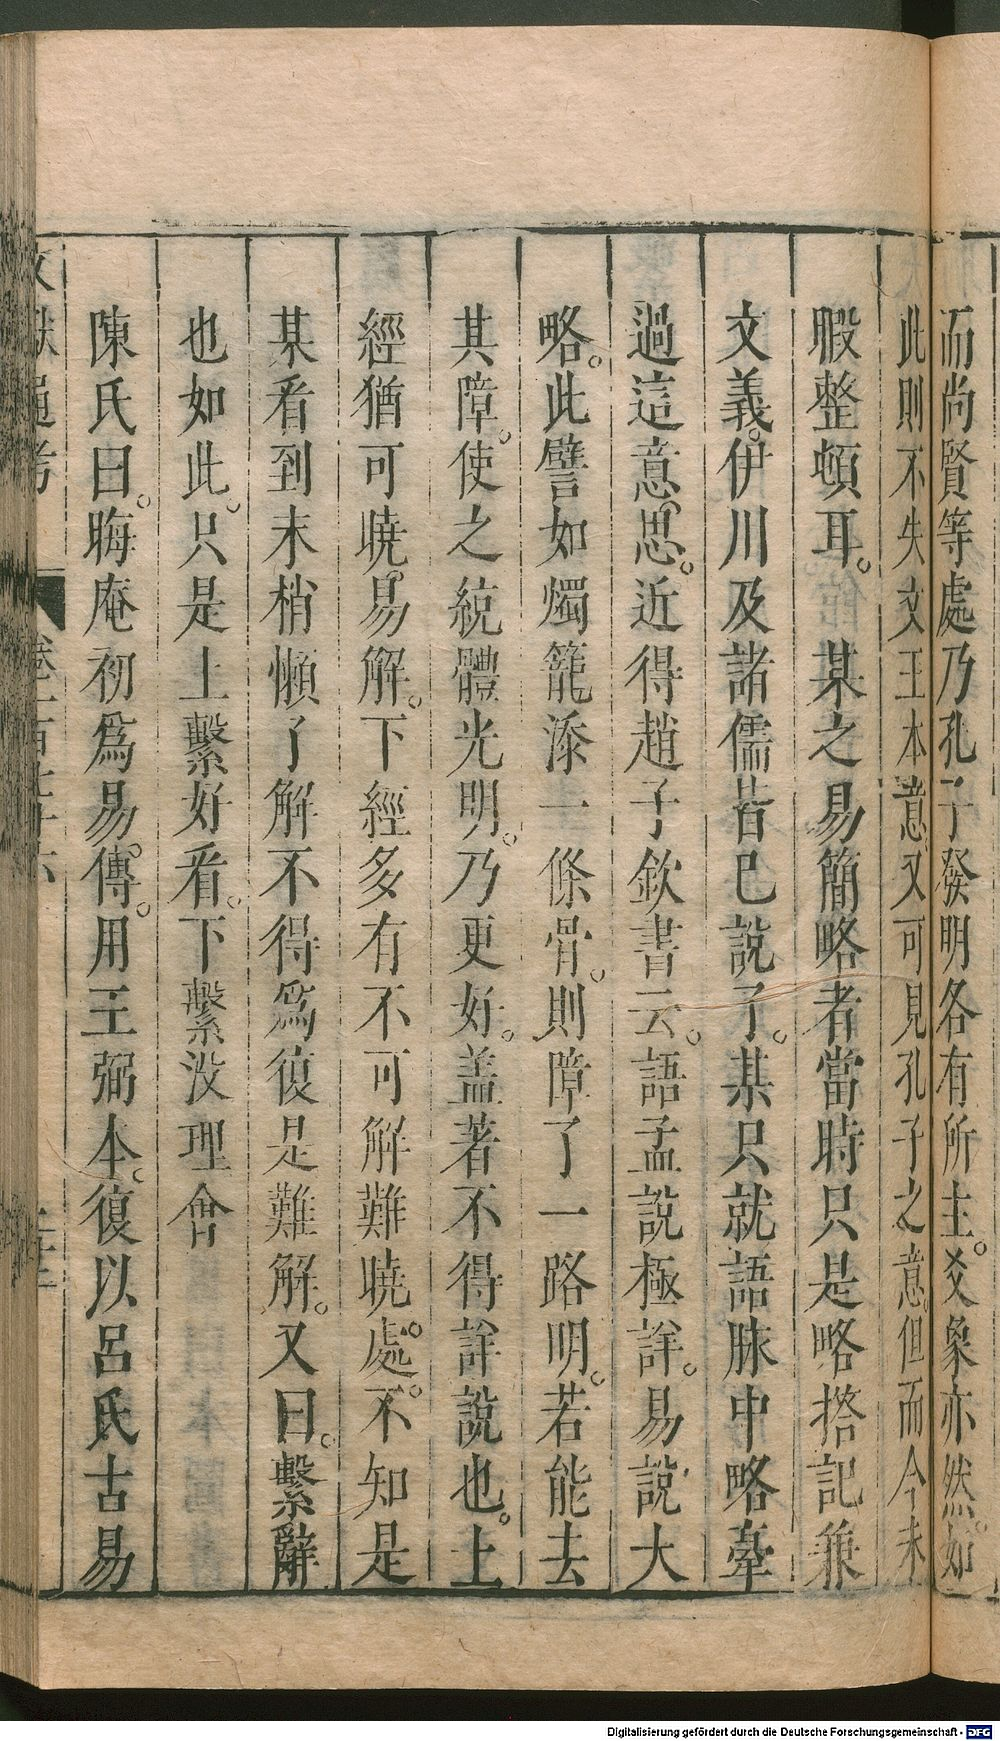 而尚賢等處乃孔子發明各有所主。爻象亦然。如
此則不失文王本意。又可見孔子之意。但而今未
暇整頓耳。某之易簡略者當時只是略搭記兼
文義。伊川及諸儒皆已說了。某只就語脉中略牽
過這意思。近得趙子欽書云。語孟說極詳。易說大
略。此譬如燭籠添一條骨。則障了一路明。若能去
其障。使之統體光明。乃更好。盖著不得詳說也。上
經猶可曉。易解。下經多有不可解難曉處。不知是
某看到末梢懶了解不得爲復是難解。又曰。繫辭
也如此。只是上繫好看。下繫没理會
陳氏曰。晦庵初爲易傳。用王弼本。復以呂氏古易
Digitalisierung gefördert durch die Deutsche Forschungsgemeinschaft - DFG